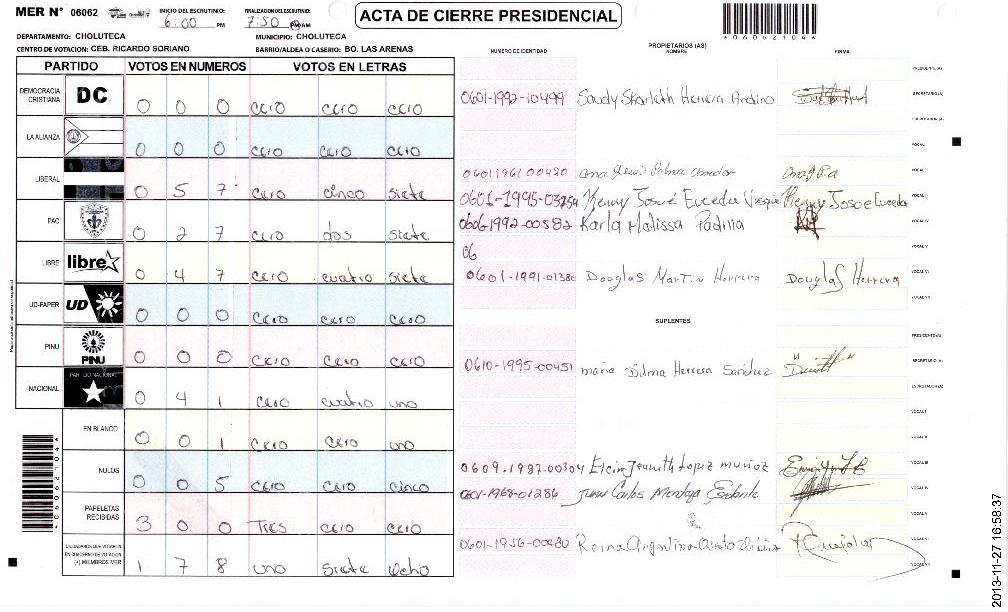 MER N° 06062 INICIO DEL ESCRUTINIO: 6:00 PM FINALIZACION DEL ESCRUTINIO: 7:50 PM AM
ACTA DE CIERRE PRESIDENCIAL
*06062104*
DEPARTAMENTO: CHOLUTECA MUNICIPIO: CHOLUTECA
CENTRO DE VOTACION: CEB. RICARDO SORIANO BARRIO/ALDEA O CASERIO: BO. LAS ARENAS
NUMERO DE IDENTIDAD PROPIETARIOS (AS) NOMBRE FIRMA
PARTIDO VOTOS EN NUMEROS VOTOS EN LETRAS
DEMOCRACIA CRISTIANA DC 0 0 0 cero cero cero
LA ALIANZA 0 0 0 cero cero cero
LIBERAL 0 5 7 cero cinco siete
PAC 0 2 7 cero dos siete
LIBRE libre 0 4 7 cero cuatro siete
UD-FAPER UD 0 0 0 cero cero cero
PINU PINU 0 0 0 cero cero cero
NACIONAL PARTIDO NACIONAL 0 4 1 cero cuatro uno
EN BLANCO 0 0 1 cero cero uno
NULOS 0 0 5 cero cero cinco
PAPELETAS RECIBIDAS 3 0 0 Tres cero cero
CIUDADANOS QUE VOTARON EN CUADERNO DE VOTACION (+) MIEMBROS MER 1 7 8 uno siete ocho
PRESIDENTE (A)
0601-1992-10499 Herrera Andino SECRETARIO (A)
ESCRUTADOR (A)
VOCAL I
Ana Palma Amador VOCAL II
0601-1995-03254 Kenny José Euceda Kenny Josoe Euceda VOCAL III
0606-1992-00582 Karla Malissa Padilla VOCAL IV
06 VOCAL V
0601-1991-01380 Douglas Martin Herrera Douglas Herrera VOCAL VI
VOCAL VII
SUPLENTES
PRESIDENTE (A)
0610-1995-00451 maria Dilma Herrera Sanchez SECRETARIO (A)
ESCRUTADOR (A)
VOCAL I
VOCAL II
0609-1987-00304 Jeannith Lopez muñoz VOCAL III
0601-1968-01286 Juan Carlos VOCAL IV
VOCAL V
0601-1956-00480 Reina Argentina VOCAL VI
VOCAL VII
*06062104*
2013-11-27 16:58:37